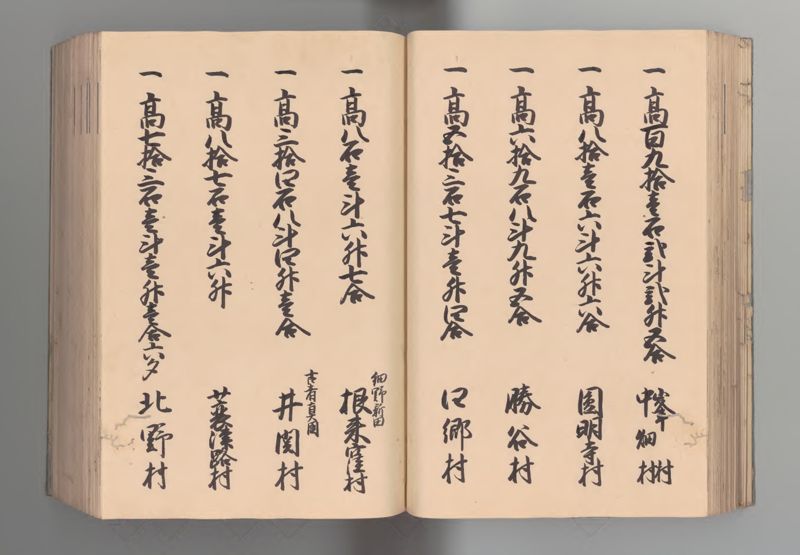 一 高百九拾壱石弐斗弐升五合 中畑村
一 高八拾壱石六斗六升六合 圓明寺村
一 高六拾九石八斗九升五合 勝谷村
一 高五拾三石七斗壱升四合 口郷村
一 高八石壱斗六升七合 細野新田 根来窪村
一 高三拾四石八斗四升壱合 井関村
一 高八拾七石壱斗六升
一 高七拾三石壱斗壱升壱合六夕 北野村